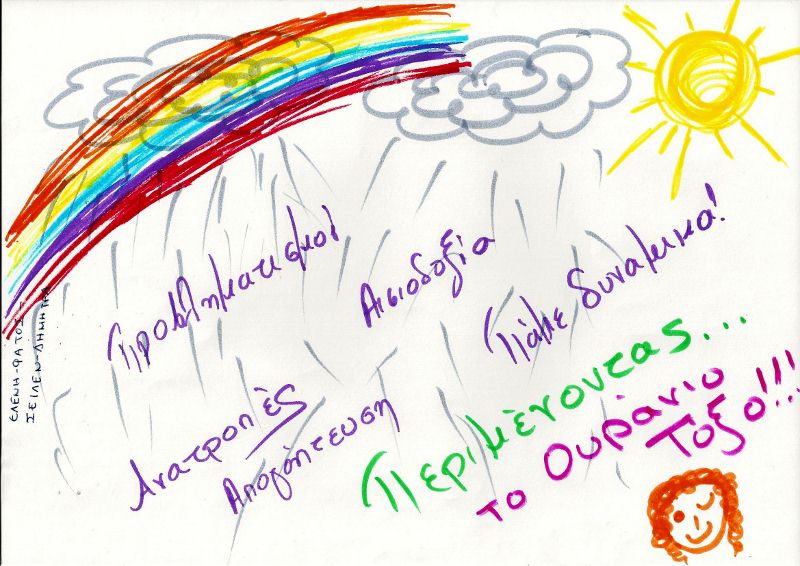 Προβληματισμοί
Αισιοδοξία
Πάμε δυναμικά!
Ανατροπές
Απογοήτευση
Περιμένοντας...
το Ουράνιο
Τόξο!!!
ΕΛΕΝΗ-ΦΑΤΟΣ-
ΣΕΙΛΕΝ-ΔΗΜΗΤΡΑ